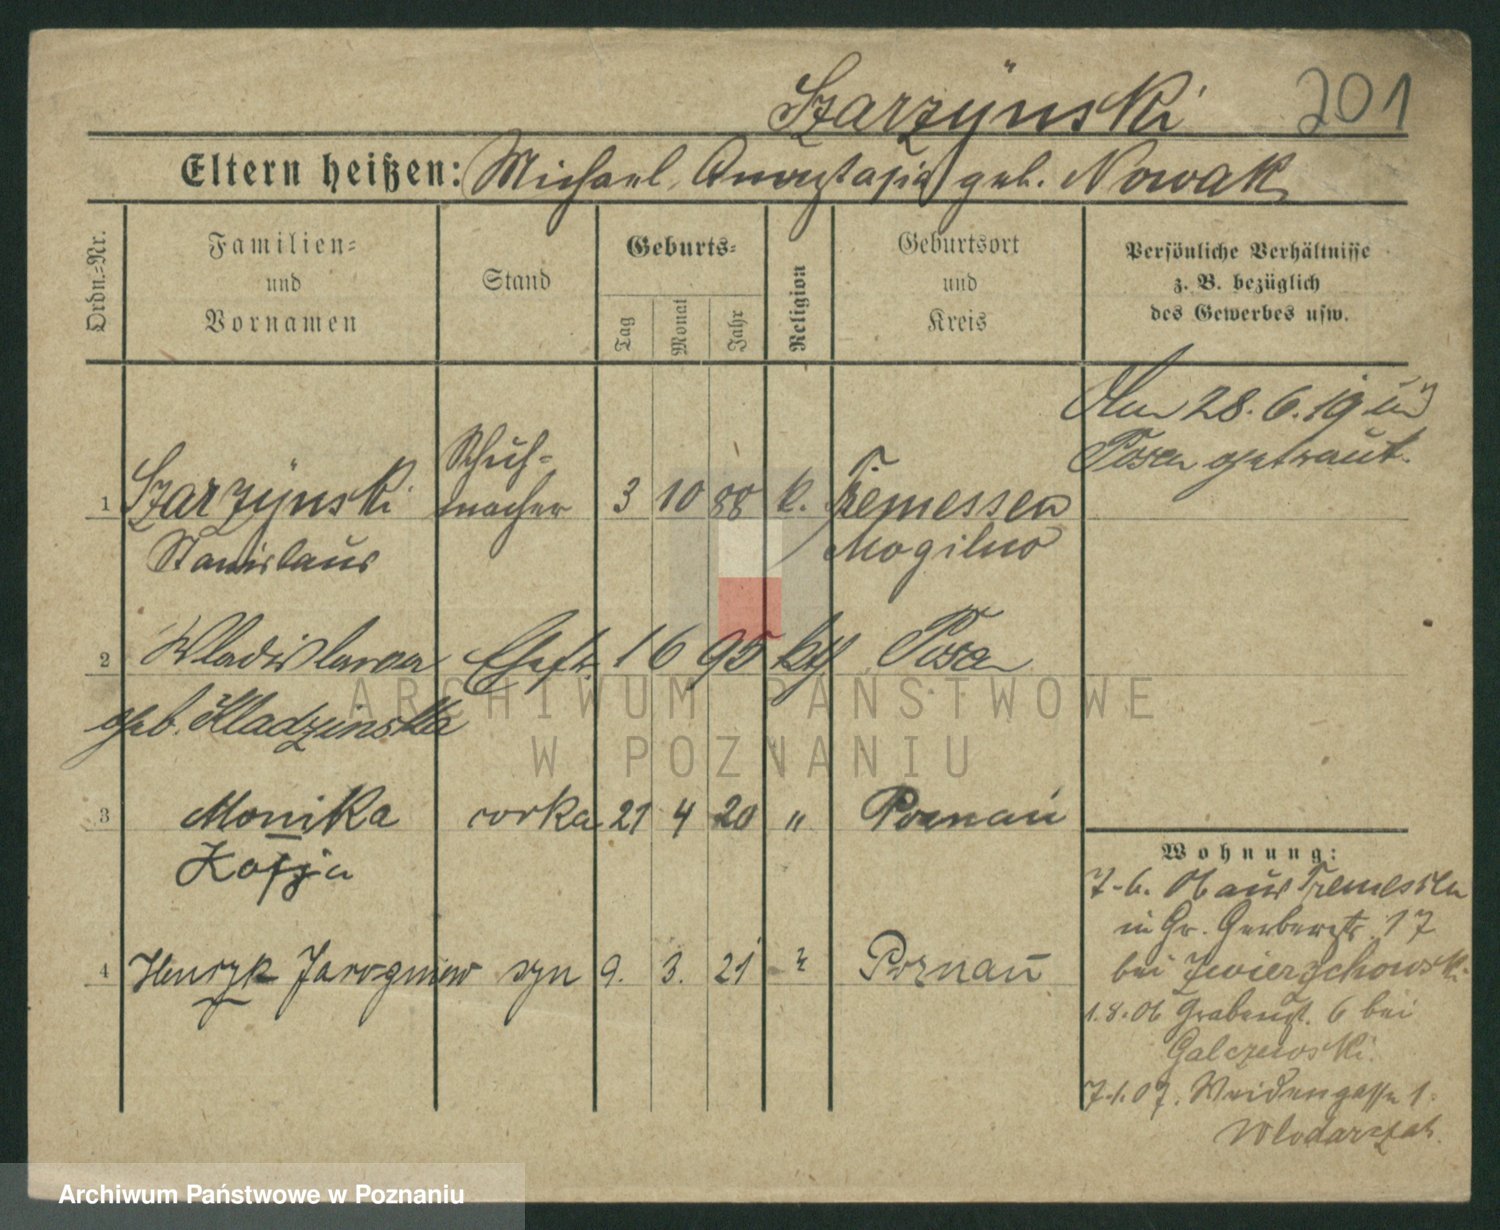 Szarzÿnski 201
Eltern heißen: Michael, Anastasia geb. Nowak
Ordn.-Nr.
Familien- und Vornamen
Stand
Geburts-
Tag
Monat
Jahr
Religion
Geburtsort und Kreis
Persönliche Verhältnisse
z. B. bezüglich
des Gewerbes usw.
Am 28.6.19 in
Posen getraut.
1 Szarzÿnski Schuh- macher 3 10 88 k. Tremessen
Stanislaus Mogilno
2 Wladislawa Ehefr. 1 6 95 kth Posen
geb. Kladzinska
3 Monika corka 21 4 20 " Poznań
Zofja
4 Henryk Jarogniew syn 9. 3. 21 Poznań
Wohnung:
7.6.06 aus Tremessen
in Gr. Gerberstr. 17
bei Zwierzchowski
1.8.06 Grabenst. 6 bei
Galczewski.
7.1.07. Weidengasse 1.
Wlodarczak.
ARCHIWUM PAŃSTWOWE
W POZNANIU
Archiwum Państwowe w Poznaniu